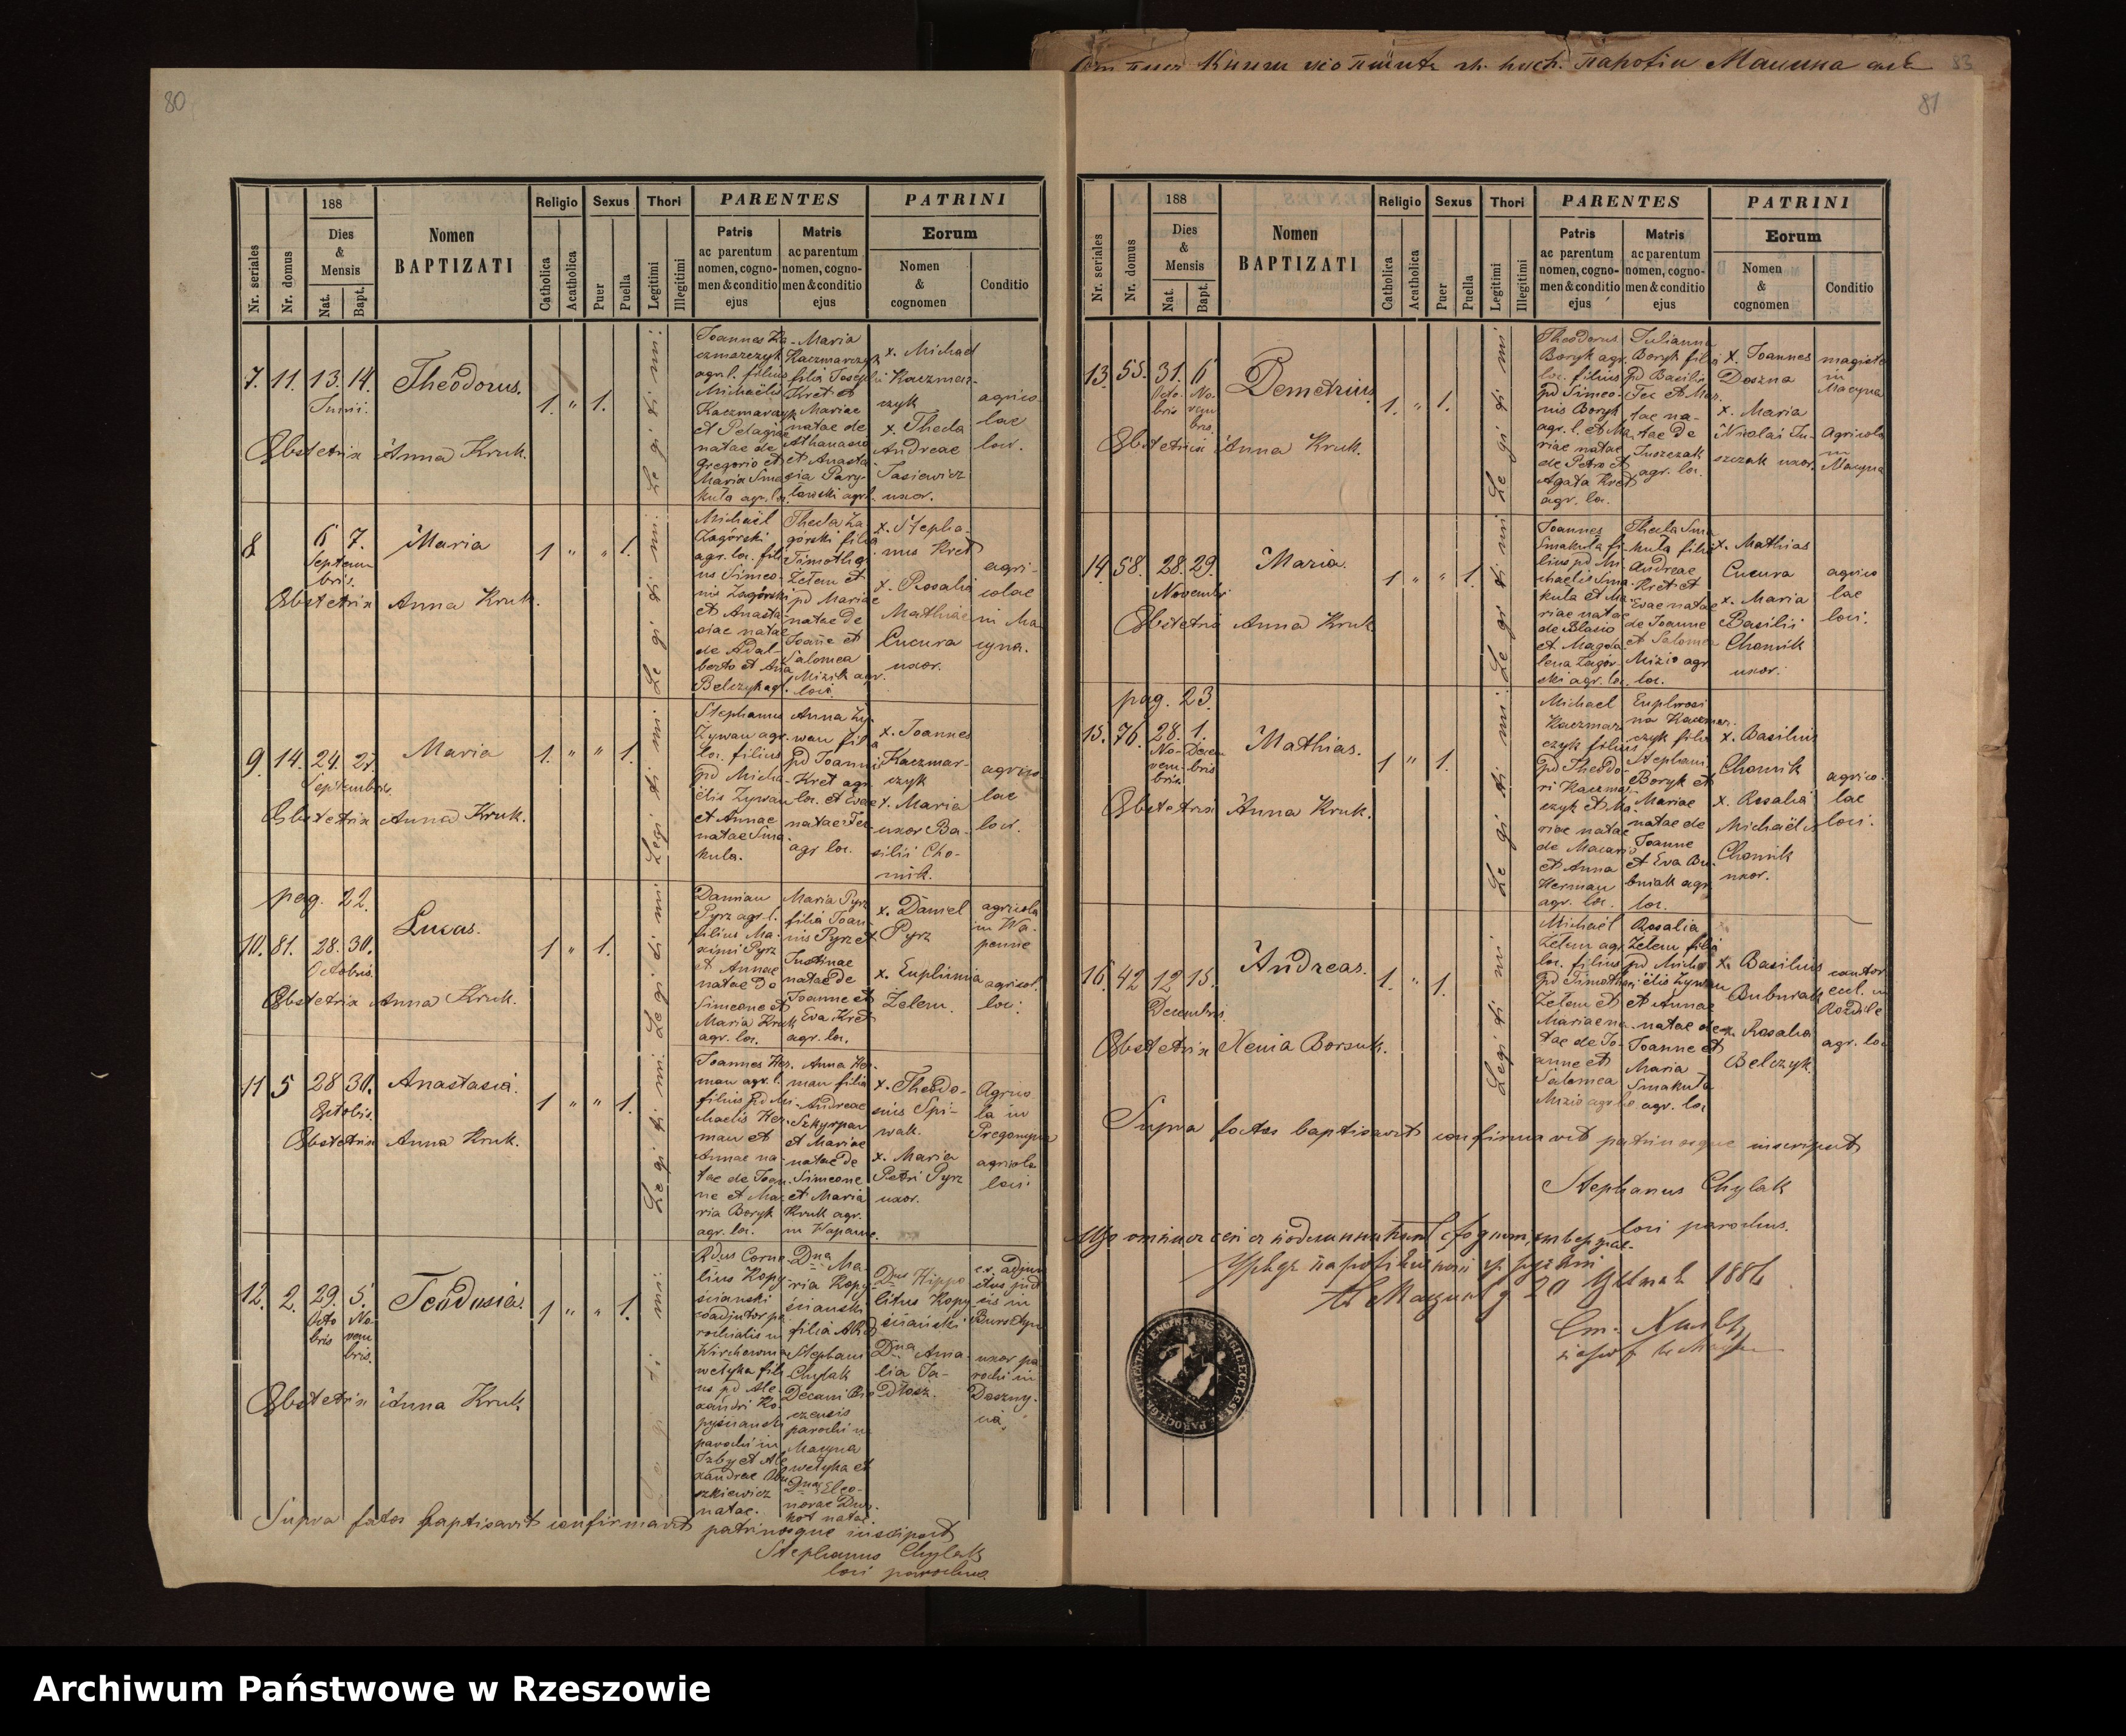 80
Nr. seriales
Nr. domus
188
Dies
&
Mensis
Nat.
Bapt.
Nomen
BAPTIZATI
Religio
Catholica
Acatholica
Sexus
Puer
Puella
Thori
Legitimi
Illegitimi
PARENTES
Patris
ac parentum
nomen, cogno-
men & conditio
ejus
Matris
ac parentum
nomen, cogno-
men & conditio
ejus
PATRINI
Eorum
Nomen
&
cognomen
Conditio
7. 11. 13. 14. Theodorus. 1. " 1.
Junii.
Obstetrix Anna Kruk.
Le gi ti mi
Joannes Ka-
czmarczyk
agr. l. filius
Michaëlis
Kaczmarczyk
et Pelagiae
natae de
Gregorio et
Maria Sma
kuła agr. loc.
Maria
Kaczmarczyk
filia Josephi
Kret et
Mariae
natae de
Athanasio
et Anasta-
sia Pary-
x. Michael
Kaczmar-
czyk
x. Thecla
Andreae
Jasiewicz
uxor.
agrico
lae
loci.
8 6 7. Maria 1 " " 1.
Septem
bris.
Obstetrix Anna Kruk.
Le gi ti mi
Michaël
Zagórski
agr. loc. fili
us Simeo-
nis Zagórski
et Anasta
siae natae
de Adal-
berto et Anna
Belczyk agr.
Thecla Za
górski filia
Timothei
Zełem et
pd Mariae
natae de
Joanne et
Salomea
Mizik agr.
loci.
x. Stepha-
nus Kret
x. Rosalia
Mathiae
Cucura
uxor.
agri-
colae
in Ma
cyna.
9. 14. 24. 27. Maria 1. " " 1.
Septembris.
Obstetrix Anna Kruk.
Legi ti mi
Stephanus
Żywau agr.
loc. filius
pd Micha-
ëlis Zywau
et Annae
natae Sma
kuła.
Anna Ży-
wau filia
pd Joannis
Kret agr.
loc. et Evae
natae Fec
agr loc.
x. Joannes
Kaczmar-
czyk
x. Maria
uxor Ba-
silii Cho-
mik.
agrico
lae
loci.
pag. 22.
10. 81. 28. 30. Lucas. 1 " 1.
Octobris.
Obstetrix Anna Kruk.
Le gi ti mi
Damian
Pyrz agr. l.
filius Ma-
ximi Pyrz
et Annae
natae de
Simeone et
Maria Kruk
agr. loc.
Maria Pyrz
filia Joan-
nis Pyrz et
Justinae
natae de
Joanne et
Eva Kret
agr. loc.
x. Daniel
Pyrz
x. Euphimia
Zelem.
agricola
in Wa-
penne
agricol.
loci
11 5 28 30. Anastasia 1 " " 1.
Octobis.
Obstetrix Anna Kruk.
Le gi ti mi
Joannes Her-
man agr. l.
filius pd Mi-
chaelis Her-
man et
Annae na-
tae de Joan-
ne et Ma-
ria Boryk
agr. loc.
Anna Her-
man filia
Andreae
Szkyrpan
et Mariae
natae de
Simeone
et Maria
Kruk agr.
in Wapanne.
x. Theodo-
sius Spi-
wak.
x. Maria
Petri Pyrz
uxor.
Agrico
la in
Pregonyna
agricola
loci
12. 2. 29. 5. Teodosia. 1 " " 1.
Octo No-
bris vem
bris.
Obstetrix Anna Kruk
Le gi ti mi
Rdus Corne-
lius Kopy-
ścianski
coadjutor pa
rochialis in
wełyka fili
us pd Ale-
xandri Ko-
pyścianski
parochi in
Izby et Ale
xandrae
natae.
Dna Ma-
ria Kopy-
ścianski
filia
Stephani
Chylak
Decani
parochi in
Macyna
wełyka et
Dnae Eleo-
norae
natae.
Dnus Hippo
litus Kopy
ścianski
Dna Ama-
lia Ja-
dłosz.
uxor pa
rochi in
Doszny-
ca
Supra fatos baptisavit confirmavit patrinosque inscripsit
Stephanus Chylak
loci parochus.
83
81
Nr. seriales
Nr. domus
188
Dies
&
Mensis
Nat.
Bapt.
Nomen
BAPTIZATI
Religio
Catholica
Acatholica
Sexus
Puer
Puella
Thori
Legitimi
Illegitimi
PARENTES
Patris
ac parentum
nomen, cogno-
men & conditio
ejus
Matris
ac parentum
nomen, cogno-
men & conditio
ejus
PATRINI
Eorum
Nomen
&
cognomen
Conditio
13. 55. 31. 6 Demetrius 1. " 1.
Octo- No-
bris vem
bris.
Obstetrix Anna Kruk.
Le gi ti mi
Theodorus
Boryk agr.
loc. filius
pd Simeo-
nis Boryk
agr. l. et Ma
riae natae
de Petro et
Agata Kret
agr. loc.
Julianna
Boryk filia
pd Basilii
Fec et Ma-
riae na-
tae de
Juszczak
agr. loc.
x. Joannes
Doszna
x. Maria
Nicolai Ju-
szczak uxor.
magister
in
Macyna
Agricola
in
Macyna
14. 58. 28. 29. Maria. 1 " " 1.
Novembr
Obstetrix Anna Kruk
Le gi ti mi
Joannes
Smakuła fi-
lius pd Mi-
chaelis Sma
kuła et Ma-
riae natae
de Blasio
et Magda
lena Zagór-
ski agr. loc.
Thecla Sma
kuła filia
Andreae
Kret et
Evae natae
de Joanne
et Salomea
Mizio agr
loc.
x. Mathias
Cucura
x. Maria
Basilii
Chomik
uxor.
agrico
lae
loci.
pag. 23.
15. 76. 28. 1. Mathias. 1 " 1.
No- Decem
vem- bris
bris
Obstetrix Anna Kruk.
Le gi ti mi
Michael
Kaczmar
czyk filius
pd Theodo-
ri Kaczmar
czyk et Ma-
riae natae
de Macario
et Anna
Herman
agr. loc.
Euphrosi
na Kaczmar-
czyk filia
Stephani
Boryk et
Mariae
natae de
Joanne
et Eva Bu-
bniak agr.
loc.
x. Basilius
Chomik
x. Rosalia
Michaëlis
Chomik
uxor.
agrico-
lae
loci.
16. 42 12 15. Andreas. 1. " 1.
Decembris.
Obstetrix Xenia Borsuk.
Legi ti mi
Michaël
Zełem agr.
loc. filius
pd Timothei
Zełem et
Mariae na-
tae de Jo-
anne et
Salomea
Mizio agr.
Rosalia
Zelem filia
pd Micha
ëlis Zywau
et Annae
natae de
Joanne et
Maria
Smakuła
agr. loc
x. Basilius
Buburak
x. Rosalia
Belczyk.
cantor
eccl. in
Rozdile
agr. loc
Supra fatos baptisavit confirmavit patrinosque inscripsit
Stephanus Chylak
loci parochus.
1886
Archiwum Państwowe w Rzeszowie